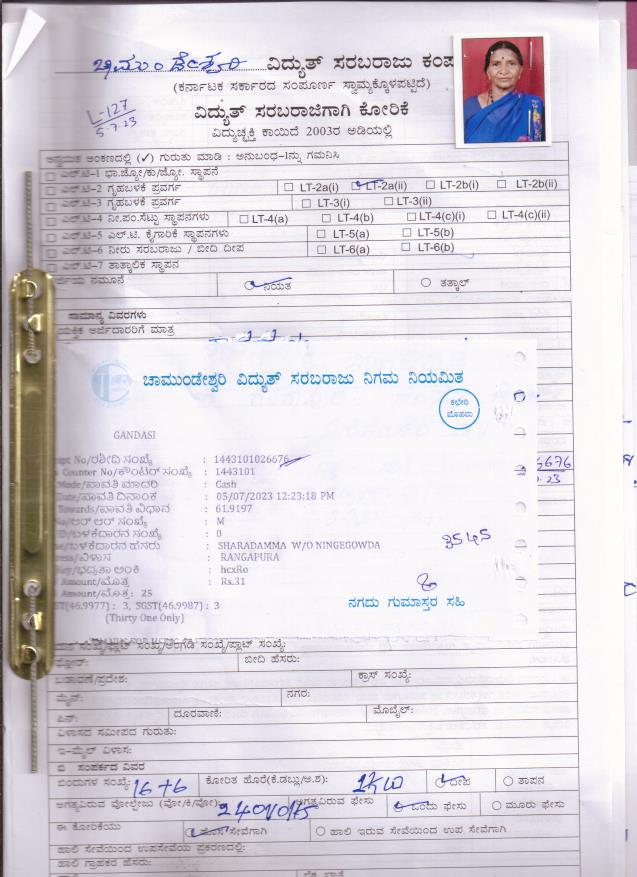 ಚಾಮುಂಡೇಶ್ವರಿ ವಿದ್ಯುತ್ ಸರಬರಾಜು ಕಂಪ
(ಕರ್ನಾಟಕ ಸರ್ಕಾರದ ಸಂಪೂರ್ಣ ಸ್ವಾಮ್ಯಕ್ಕೊಳಪಟ್ಟಿದೆ)
L-127
5.7.23
ವಿದ್ಯುತ್ ಸರಬರಾಜಿಗಾಗಿ ಕೋರಿಕೆ
ವಿದ್ಯುಚ್ಛಕ್ತಿ ಕಾಯಿದೆ 2003ರ ಅಡಿಯಲ್ಲಿ
ಅನ್ವಯಿತ ಅಂಕಣದಲ್ಲಿ (✓) ಗುರುತು ಮಾಡಿ : ಅನುಬಂಧ-1ನ್ನು ಗಮನಿಸಿ
ಎಲ್.ಟಿ-1 ಭಾ.ಜ್ಯೋ/ಕು/ಜ್ಯೋ. ಸ್ಥಾಪನ
ಎಲ್.ಟಿ-2 ಗೃಹಬಳಕೆ ಪ್ರವರ್ಗ LT-2a(i) LT-2a(ii) LT-2b(i) LT-2b(ii)
ಎಲ್.ಟಿ-3 ಗೃಹಬಳಕೆ ಪ್ರವರ್ಗ LT-3(i) LT-3(ii)
ಎಲ್.ಟಿ-4 ನೀ.ಪಂ.ಸೆಟ್ಟು ಸ್ಥಾಪನಗಳು LT-4(a) LT-4(b) LT-4(c)(i) LT-4(c)(ii)
ಎಲ್.ಟಿ-5 ಎಲ್.ಟಿ. ಕೈಗಾರಿಕೆ ಸ್ಥಾಪನಗಳು LT-5(a) LT-5(b)
ಎಲ್.ಟಿ-6 ನೀರು ಸರಬರಾಜು / ಬೀದಿ ದೀಪ LT-6(a) LT-6(b)
ಎಲ್.ಟಿ-7 ತಾತ್ಕಾಲಿಕ ಸ್ಥಾಪನ
ರ್ಜಿಯ ನಮೂನೆ ನಿಯತ ತತ್ಕಾಲ್
ಸಾಮಾನ್ಯ ವಿವರಗಳು
ಯಕ್ತಿಕ ಅರ್ಜಿದಾರರಿಗೆ ಮಾತ್ರ
ಚಾಮುಂಡೇಶ್ವರಿ ವಿದ್ಯುತ್ ಸರಬರಾಜು ನಿಗಮ ನಿಯಮಿತ
ಕಛೇರಿ
ಮೊಹರು
GANDASI
ipt No/ರಶೀದಿ ಸಂಖ್ಯೆ : 1443101026676
Counter No/ಕೌಂಟರ್ ಸಂಖ್ಯೆ : 1443101
5676
Mode/ಪಾವತಿ ಮಾದರಿ : Cash
.23
Date/ಪಾವತಿ ದಿನಾಂಕ : 05/07/2023 12:23:18 PM
Towards/ಪಾವತಿ ವಿಧಾನ : 61.9197
No/ಆರ್ ಆರ್ ಸಂಖ್ಯೆ : M
ID/ಬಳಕೆದಾರನ ಸಂಖ್ಯೆ : 0
me/ಬಳಕೆದಾರನ ಹೆಸರು : SHARADAMMA W/O NINGEGOWDA
3545
ress/ವಿಳಾಸ : RANGAPURA
Key/ಭದ್ರತಾ ಅಂಕಿ : hcxRo
Amount/ಮೊತ್ತ : Rs.31
Amount/ಮೊತ್ತ: 25
ST(46.9977) : 3, SGST(46.9987) : 3
(Thirty One Only)
ನಗದು ಗುಮಾಸ್ತರ ಸಹಿ
ಸಂಖ್ಯೆ/ಫ್ಲಾಟ್ ಸಂಖ್ಯೆ/ಅಂಗಡಿ ಸಂಖ್ಯೆ/ಪ್ಲಾಟ್ ಸಂಖ್ಯೆ:
ಫ್ಲೋರ್: ಬೀದಿ ಹೆಸರು:
ಬಡಾವಣೆ/ಪ್ರದೇಶ: ಕ್ರಾಸ್ ಸಂಖ್ಯೆ:
ಮೈನ್: ನಗರ:
ಪಿನ್: ದೂರವಾಣಿ: ಮೊಬೈಲ್:
ವಿಳಾಸದ ಸಮೀಪದ ಗುರುತು:
ಇ-ಮೈಲ್ ವಿಳಾಸ:
ಬಿ ಸಂಪರ್ಕದ ವಿವರ
ಬಿಂದುಗಳ ಸಂಖ್ಯೆ: 16+6 ಕೋರಿತ ಹೊರೆ(ಕೆ.ಡಬ್ಲು/ಅ.ಶ): 1KW ದೀಪ ತಾಪನ
ಅಗತ್ಯವಿರುವ ವೋಲ್ಟೇಜು (ವೋ/ಕಿ/ವೋ): 240Volts ಅಗತ್ಯವಿರುವ ಫೇಸು ಒಂದು ಫೇಸು ಮೂರು ಫೇಸು
ಈ ಕೋರಿಕೆಯು ಹೊಸ ಸೇವೆಗಾಗಿ ಹಾಲಿ ಇರುವ ಸೇವೆಯಿಂದ ಉಪ ಸೇವೆಗಾಗಿ
ಹಾಲಿ ಸೇವೆಯಿಂದ ಉಪಸೇವೆಯ ಪ್ರಕರಣದಲ್ಲಿ:
ಹಾಲಿ ಗ್ರಾಹಕರ ಹೆಸರು: